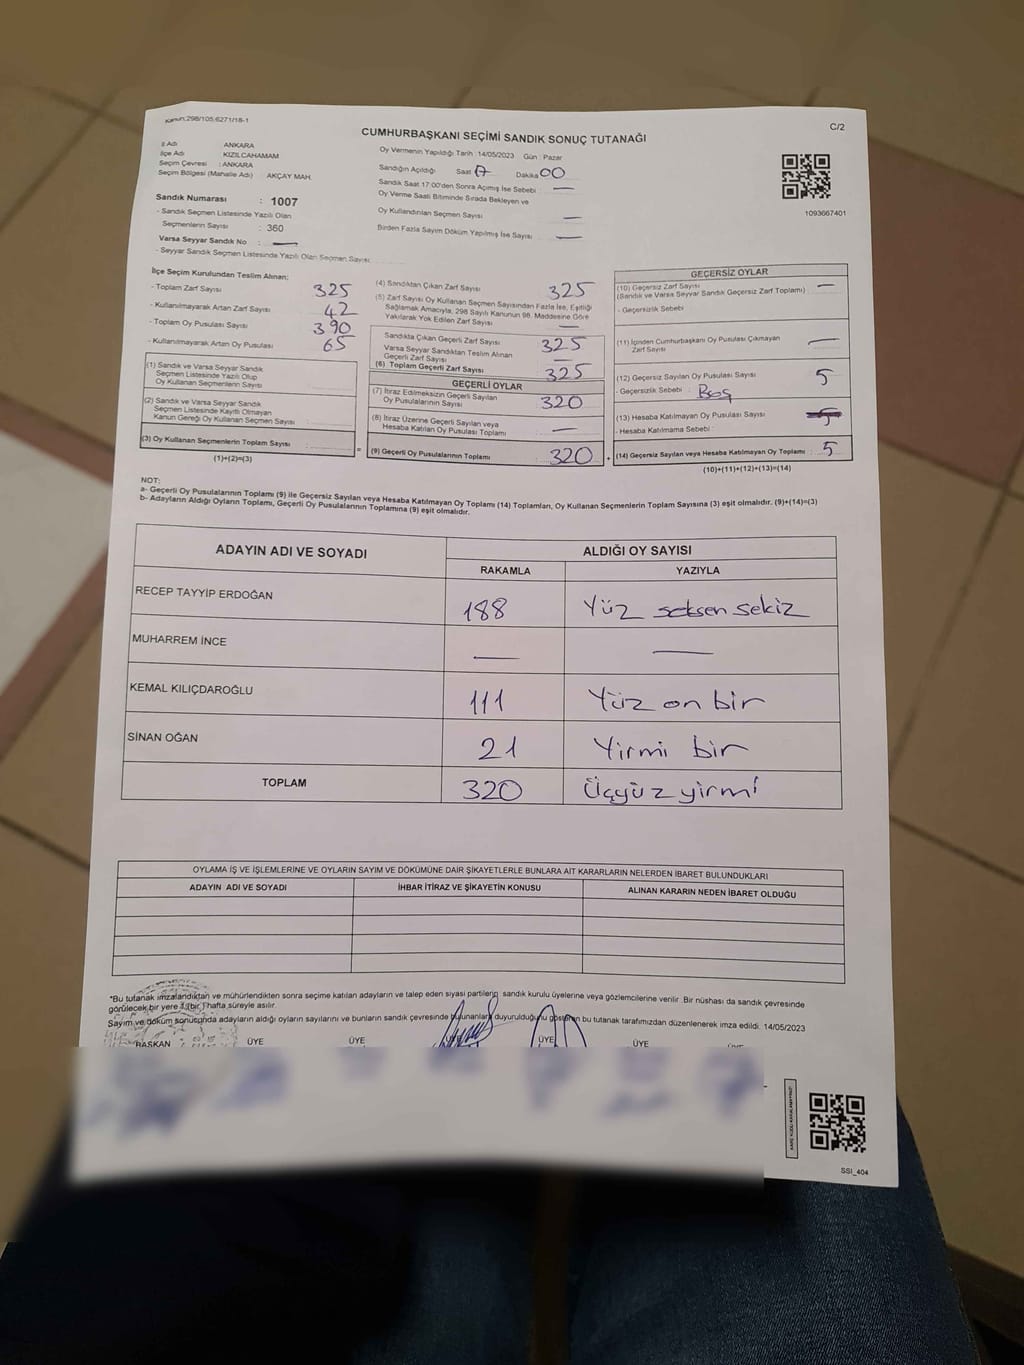 Kanun:298/105,6271/18-1
C/2
CUMHURBAŞKANI SEÇİMİ SANDIK SONUÇ TUTANAĞI
İl Adı : ANKARA
İlçe Adı : KIZILCAHAMAM
Seçim Çevresi : ANKARA
Seçim Bölgesi (Mahalle Adı) : AKÇAY MAH.
Oy Vermenin Yapıldığı Tarih : 14/05/2023 Gün : Pazar
Sandığın Açıldığı Saat 17 Dakika 00
Sandık Saat 17:00'den Sonra Açımış İse Sebebi : —
Oy Verme Saati Bitiminde Sırada Bekleyen ve
Oy Kullandırılan Seçmen Sayısı —
Birden Fazla Sayım Döküm Yapılmış İse Sayısı —
1093667401
Sandık Numarası : 1007
- Sandık Seçmen Listesinde Yazılı Olan
Seçmenlerin Sayısı : 360
Varsa Seyyar Sandık No : —
- Seyyar Sandık Seçmen Listesinde Yazılı Olan Seçmen Sayısı:
İlçe Seçim Kurulundan Teslim Alınan:
- Toplam Zarf Sayısı 325
- Kullanılmayarak Artan Zarf Sayısı 42
- Toplam Oy Pusulası Sayısı 390
- Kullanılmayarak Artan Oy Pusulası 65
(1) Sandık ve Varsa Seyyar Sandık
Seçmen Listesinde Yazılı Olup
Oy Kullanan Seçmenlerin Sayısı
(2) Sandık ve Varsa Seyyar Sandık
Seçmen Listesinde Kayıtlı Olmayan
Kanun Gereği Oy Kullanan Seçmen Sayısı
(3) Oy Kullanan Seçmenlerin Toplam Sayısı
(1)+(2)=(3)
(4) Sandıktan Çıkan Zarf Sayısı 325
(5) Zarf Sayısı Oy Kullanan Seçmen Sayısından Fazla İse, Eşitliği
Sağlamak Amacıyla, 298 Sayılı Kanunun 98. Maddesine Göre
Yakılarak Yok Edilen Zarf Sayısı —
Sandıkta Çıkan Geçerli Zarf Sayısı 325
Varsa Seyyar Sandıktan Teslim Alınan
Geçerli Zarf Sayısı —
(6) Toplam Geçerli Zarf Sayısı 325
GEÇERLİ OYLAR
(7) İtiraz Edilmeksizin Geçerli Sayılan
Oy Pusulalarının Sayısı 320
(8) İtiraz Üzerine Geçerli Sayılan veya
Hesaba Katılan Oy Pusulası Toplamı —
(9) Geçerli Oy Pusulalarının Toplamı 320
GEÇERSİZ OYLAR
(10) Geçersiz Zarf Sayısı
(Sandık ve Varsa Seyyar Sandık Geçersiz Zarf Toplamı) —
- Geçersizlik Sebebi
(11) İçinden Cumhurbaşkanı Oy Pusulası Çıkmayan
Zarf Sayısı —
(12) Geçersiz Sayılan Oy Pusulası Sayısı 5
- Geçersizlik Sebebi : Boş
(13) Hesaba Katılmayan Oy Pusulası Sayısı
- Hesaba Katılmama Sebebi :
(14) Geçersiz Sayılan veya Hesaba Katılmayan Oy Toplamı : 5
(10)+(11)+(12)+(13)=(14)
NOT:
a- Geçerli Oy Pusulalarının Toplamı (9) ile Geçersiz Sayılan veya Hesaba Katılmayan Oy Toplamı (14) Toplamları, Oy Kullanan Seçmenlerin Toplam Sayısına (3) eşit olmalıdır. (9)+(14)=(3)
b- Adayların Aldığı Oyların Toplamı, Geçerli Oy Pusulalarının Toplamına (9) eşit olmalıdır.
ADAYIN ADI VE SOYADI ALDIĞI OY SAYISI
RAKAMLA YAZIYLA
RECEP TAYYİP ERDOĞAN 188 Yüz seksen sekiz
MUHARREM İNCE — —
KEMAL KILIÇDAROĞLU 111 Yüz on bir
SİNAN OĞAN 21 Yirmi bir
TOPLAM 320 Üçyüz yirmi
OYLAMA İŞ VE İŞLEMLERİNE VE OYLARIN SAYIM VE DÖKÜMÜNE DAİR ŞİKAYETLERLE BUNLARA AİT KARARLARIN NELERDEN İBARET BULUNDUKLARI
ADAYIN ADI VE SOYADI İHBAR İTİRAZ VE ŞİKAYETİN KONUSU ALINAN KARARIN NEDEN İBARET OLDUĞU
*Bu tutanak imzalandıktan ve mühürlendikten sonra seçime katılan adayların ve talep eden siyasi partilerin sandık kurulu üyelerine veya gözlemcilerine verilir. Bir nüshası da sandık çevresinde
görülecek bir yere 1 (bir) hafta süreyle asılır.
Sayım ve döküm sonucunda adayların aldığı oyların sayılarını ve bunların sandık çevresinde bulunanlara duyurulduğunu gösteren bu tutanak tarafımızdan düzenlenerek imza edildi. 14/05/2023
BAŞKAN ÜYE ÜYE ÜYE ÜYE ÜYE
SSI_404